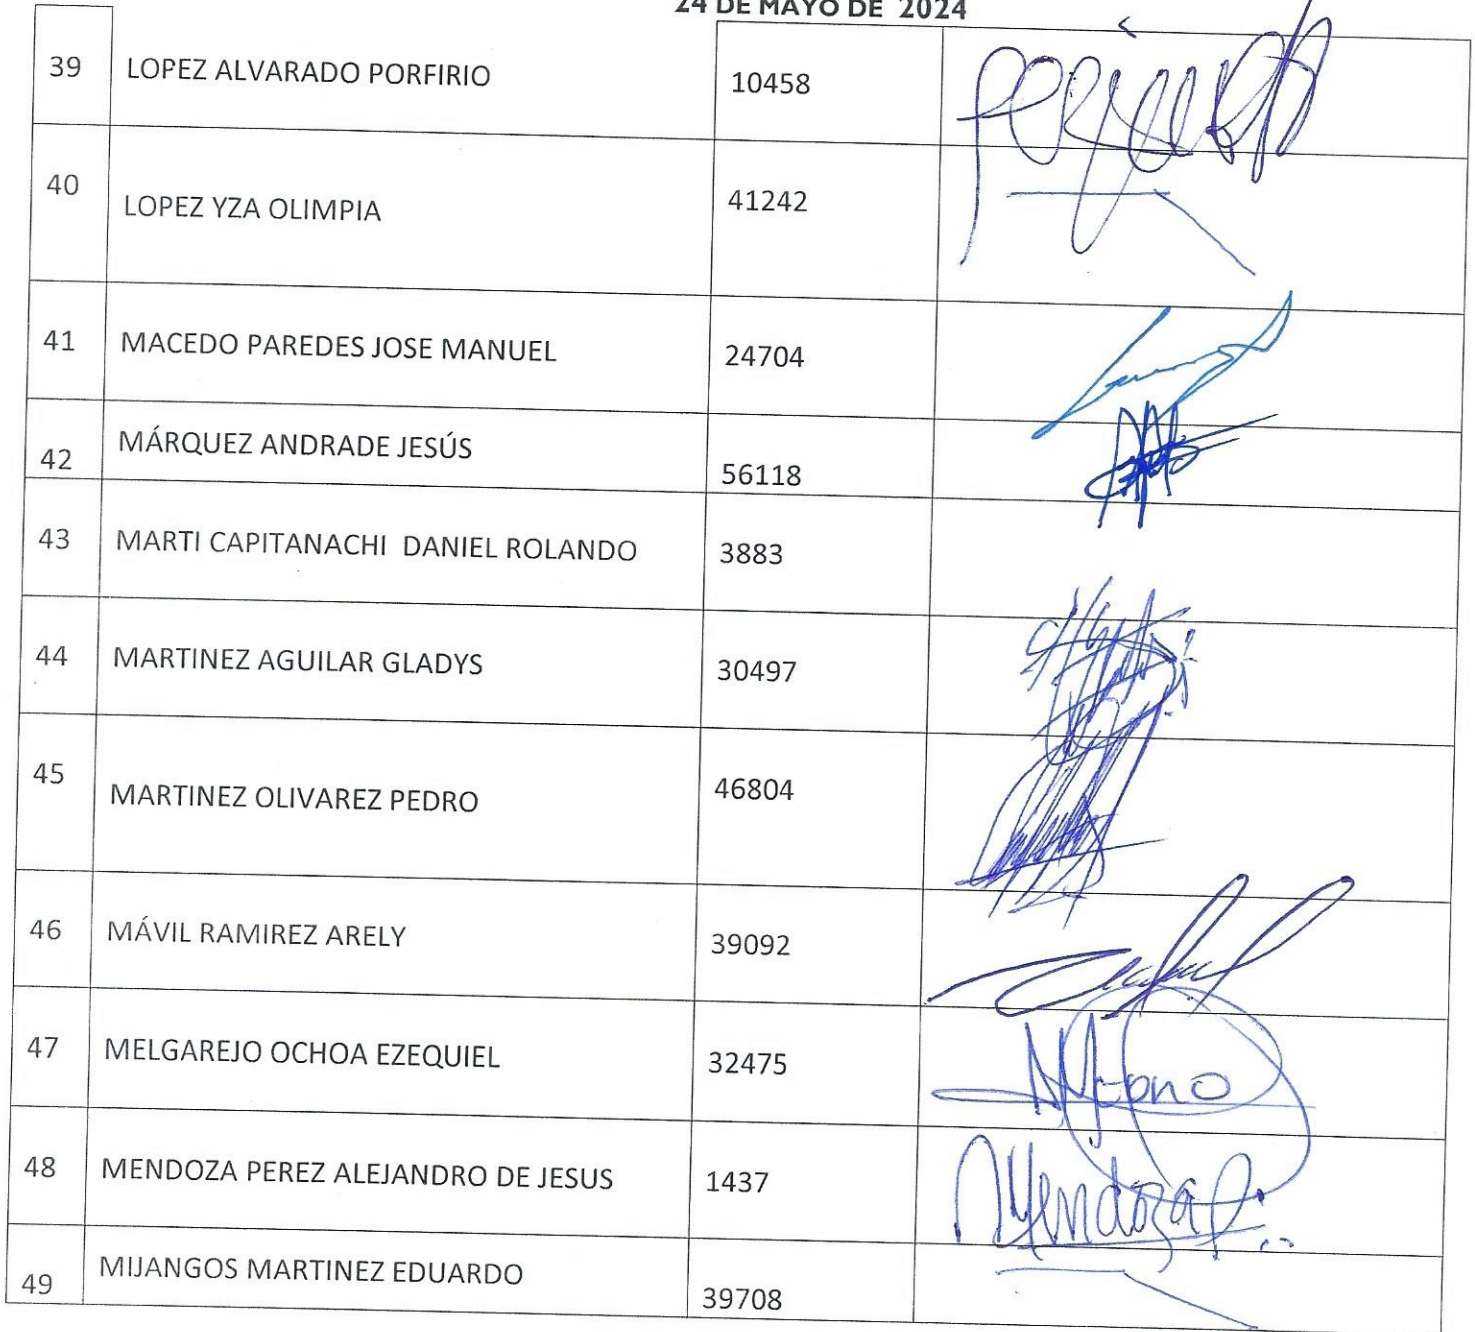 24 DE MAYO DE 2024
39 LOPEZ ALVARADO PORFIRIO 10458
40 LOPEZ YZA OLIMPIA 41242
41 MACEDO PAREDES JOSE MANUEL 24704
42 MÁRQUEZ ANDRADE JESÚS 56118
43 MARTI CAPITANACHI DANIEL ROLANDO 3883
44 MARTINEZ AGUILAR GLADYS 30497
45 MARTINEZ OLIVAREZ PEDRO 46804
46 MÁVIL RAMIREZ ARELY 39092
47 MELGAREJO OCHOA EZEQUIEL 32475
48 MENDOZA PEREZ ALEJANDRO DE JESUS 1437 Mendoza P.
49 MIJANGOS MARTINEZ EDUARDO 39708